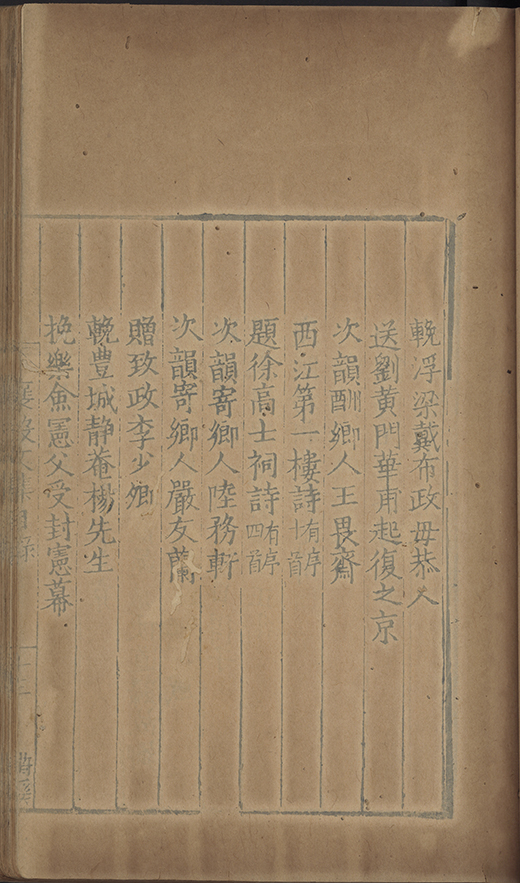 輓浮梁戴布政母恭人
送劉黃門華甫起復之京
次韻酬鄉人王畏齋
西江第一樓詩有序十首
題徐高士祠詩有序四首
次韻寄鄉人陸務軒
次韻寄鄉人嚴友蘭
贈致政李少卿
輓豐城靜菴楊先生
挽樂僉憲父受封憲幕
襄毅文集目錄